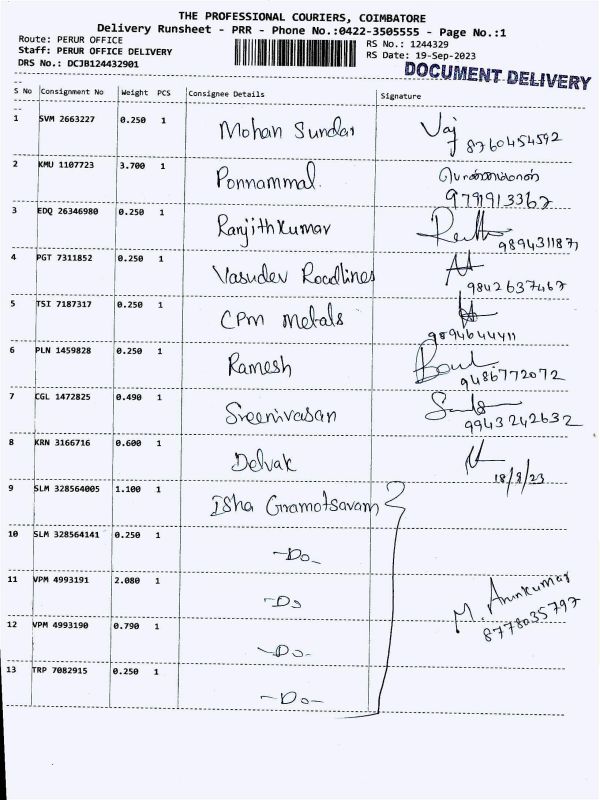 THE PROFESSIONAL COURIERS, COIMBATORE
Delivery Runsheet - PRR - Phone No.:0422-3505555 - Page No.:1
Route: PERUR OFFICE RS No.: 1244329
Staff: PERUR OFFICE DELIVERY RS Date: 19-Sep-2023
DRS No.: DCJB124432901 DOCUMENT DELIVERY
S No Consignment No Weight PCS Consignee Details Signature
1 SVM 2663227 0.250 1 Mohan Sundar Vaj
8760454592
2 KMU 1107723 3.700 1 Ponnammal. பொன்னம்மாள்
9791913362
3 EDQ 26346980 0.250 1 Ranjithkumar
9894311871
4 PGT 7311852 0.250 1 Vasudev Roadlines
9842637467
5 TSI 7187317 0.250 1 CPM Metals
9894644411
6 PLN 1459828 0.250 1 Ramesh
9486772072
7 CGL 1472825 0.490 1 Sreenivasan
9943242632
8 KRN 3166716 0.600 1 Delvak
18/9/23
9 SLM 328564005 1.100 1 Isha Gramotsavam
10 SLM 328564141 0.250 1 -Do-
11 VPM 4993191 2.080 1 -Do
M. Arunkumar
8778035797
12 VPM 4993190 0.790 1 -Do-
13 TRP 7082915 0.250 1 -Do-